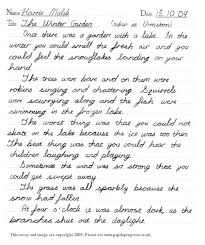 Name: Harris Malik Date: 15.10.09
Title: The Winter Garden (taken as dictation)
Once there was a garden with a lake. In the
winter you could smell the fresh air and you
could feel the snowflakes landing on your
hand.
The trees were bare and on them were
robins singing and chattering. Squirrels
were scurrying along and the fish were
swimming in the frozen lake.
The worst thing was that you could not
skate on the lake because the ice was too thin.
The best thing was that you could hear the
children laughing and playing.
Sometimes the wind was so strong that you
could get swept away.
The grass was all sparkly because the
snow had fallen.
At four o'clock it was almost dark, as the
branches shut out the daylight.
This essay and image are copyright 2009. Please see www.pupilsprogress.co.uk